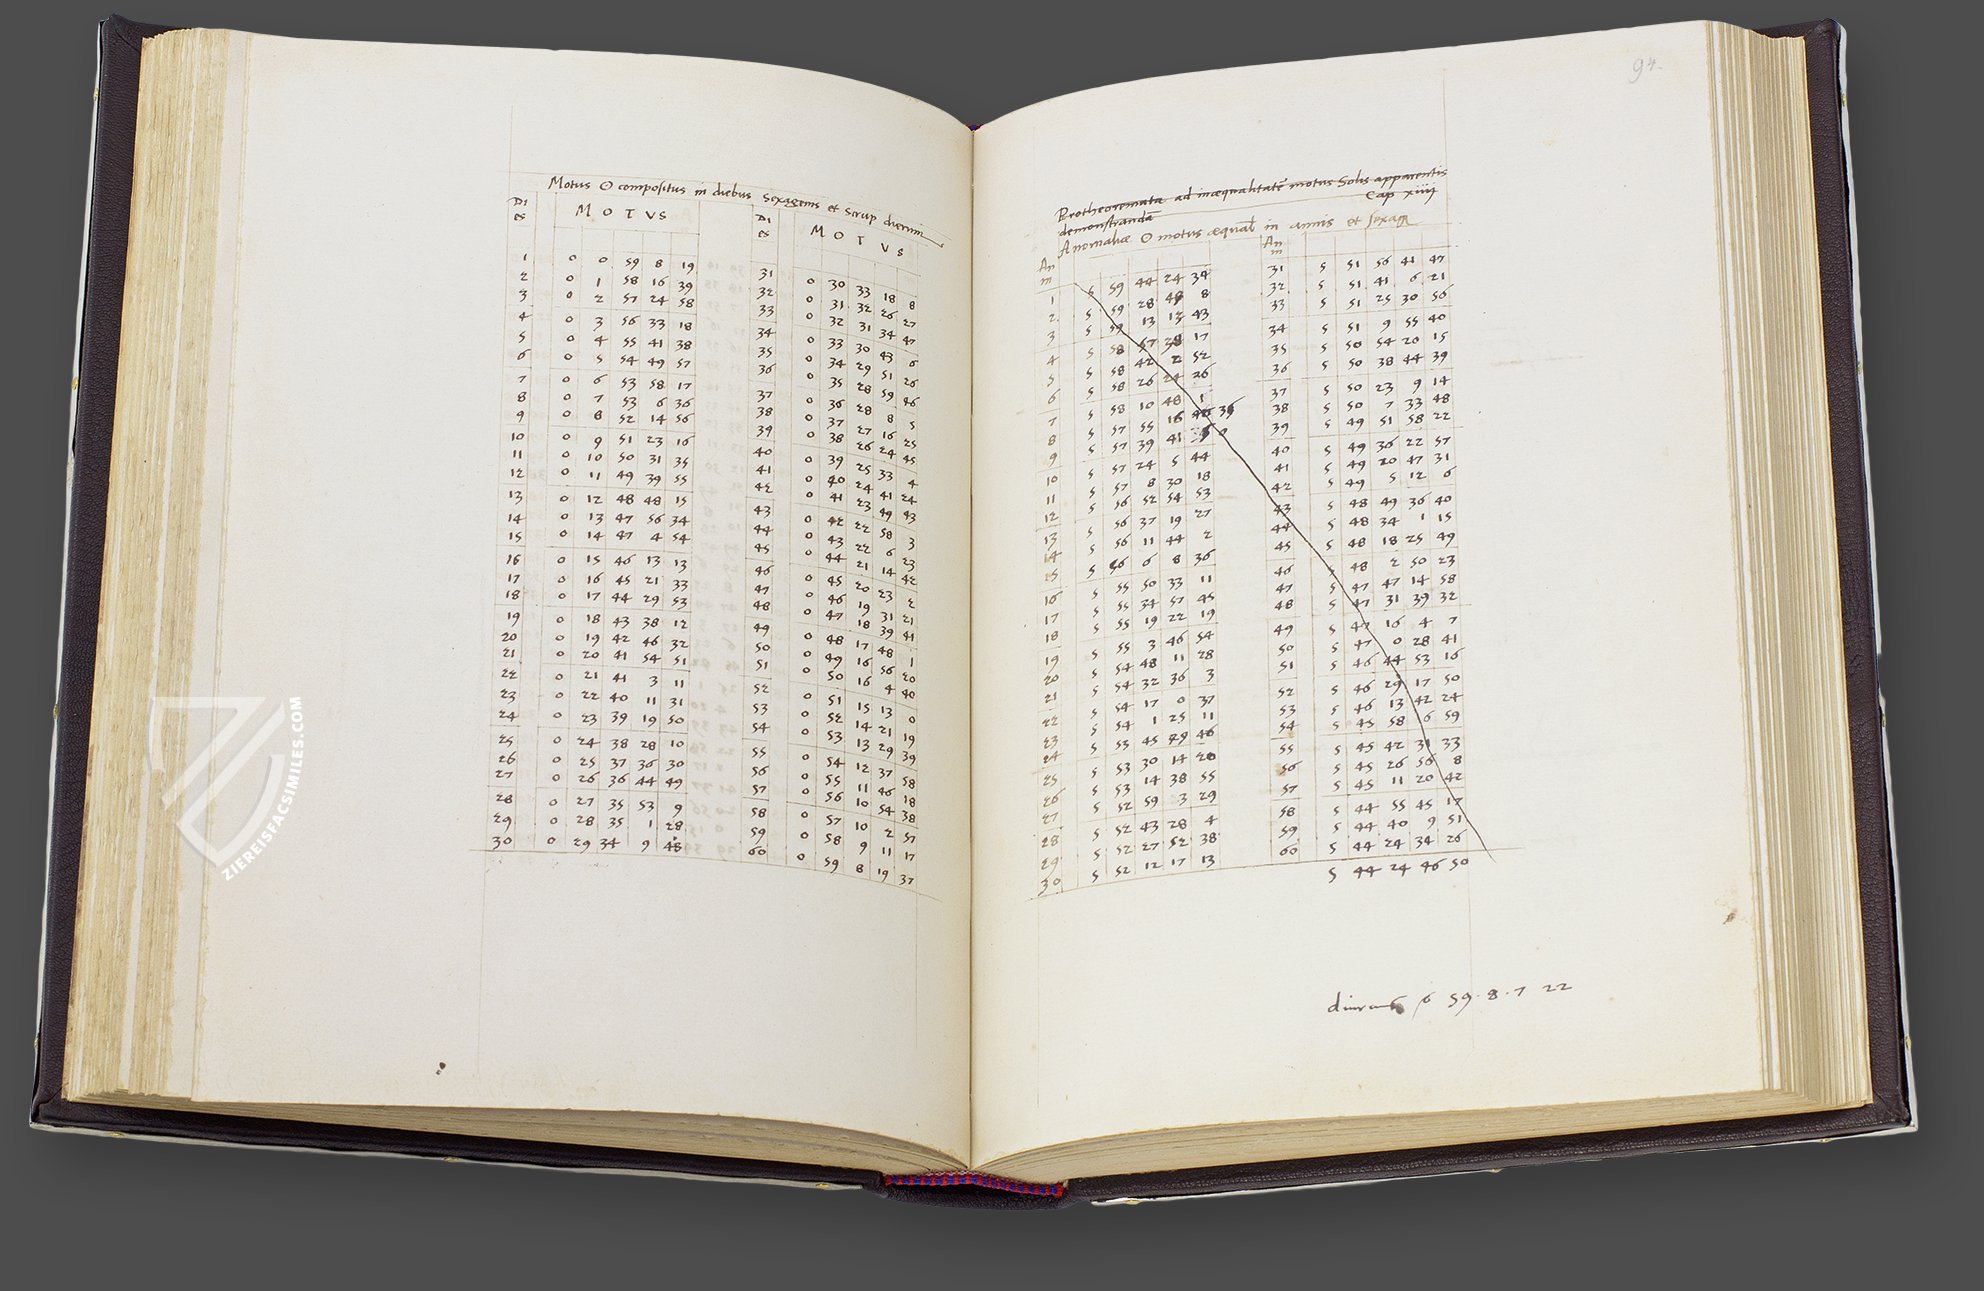 Motus ☉ compositus in diebus sexagenis et scrup dierum
Di
es
MOTVS
1 0 0 59 8 19
2 0 1 58 16 39
3 0 2 57 24 58
4 0 3 56 33 18
5 0 4 55 41 38
6 0 5 54 49 57
7 0 6 53 58 17
8 0 7 53 6 36
9 0 8 52 14 56
10 0 9 51 23 16
11 0 10 50 31 35
12 0 11 49 39 55
13 0 12 48 48 15
14 0 13 47 56 34
15 0 14 47 4 54
16 0 15 46 13 13
17 0 16 45 21 33
18 0 17 44 29 53
19 0 18 43 38 12
20 0 19 42 46 32
21 0 20 41 54 51
22 0 21 41 3 11
23 0 22 40 11 31
24 0 23 39 19 50
25 0 24 38 28 10
26 0 25 37 36 30
27 0 26 36 44 49
28 0 27 35 53 9
29 0 28 35 1 28
30 0 29 34 9 48
Di
es
MOTVS
31 0 30 33 18 8
32 0 31 32 26 27
33 0 32 31 34 47
34 0 33 30 43 6
35 0 34 29 51 26
36 0 35 28 59 46
37 0 36 28 8 5
38 0 37 27 16 25
39 0 38 26 24 45
40 0 39 25 33 4
41 0 40 24 41 24
42 0 41 23 49 43
43 0 42 22 58 3
44 0 43 22 6 23
45 0 44 21 14 42
46 0 45 20 23 2
47 0 46 19 31 21
48 0 47 18 39 41
49 0 48 17 48 1
50 0 49 16 56 20
51 0 50 16 4 40
52 0 51 15 13 0
53 0 52 14 21 19
54 0 53 13 29 39
55 0 54 12 37 58
56 0 55 11 46 18
57 0 56 10 54 38
58 0 57 10 2 57
59 0 58 9 11 17
60 0 59 8 19 37
94
Protheoremata ad inæqualitatē motus Solis apparentis
demonstranda Cap xiiij
Anomaliæ ☉ motus æqual in annis et sexag
An
m
1 5 59 44 24 34
2 5 59 28 49 8
3 5 59 13 13 43
4 5 58 57 28 17
5 5 58 42 2 52
6 5 58 26 24 26
7 5 58 10 48 1
8 5 57 55 16 35
9 5 57 39 41 0
10 5 57 24 5 44
11 5 57 8 30 18
12 5 56 52 54 53
13 5 56 37 19 27
14 5 56 11 44 2
15 5 56 6 8 36
16 5 55 50 33 11
17 5 55 34 57 45
18 5 55 19 22 19
19 5 55 3 46 54
20 5 54 48 11 28
21 5 54 32 36 3
22 5 54 17 0 37
23 5 54 1 25 11
24 5 53 45 49 46
25 5 53 30 14 20
26 5 53 14 38 55
27 5 52 59 3 29
28 5 52 43 28 4
29 5 52 27 52 38
30 5 52 12 17 13
An
m
31 5 51 56 41 47
32 5 51 41 6 21
33 5 51 25 30 56
34 5 51 9 55 40
35 5 50 54 20 15
36 5 50 38 44 39
37 5 50 23 9 14
38 5 50 7 33 48
39 5 49 51 58 22
40 5 49 36 22 57
41 5 49 20 47 31
42 5 49 5 12 6
43 5 48 49 36 40
44 5 48 34 1 15
45 5 48 18 25 49
46 5 48 2 50 23
47 5 47 47 14 58
48 5 47 31 39 32
49 5 47 16 4 7
50 5 47 0 28 41
51 5 46 44 53 16
52 5 46 29 17 50
53 5 46 13 42 24
54 5 45 58 6 59
55 5 45 42 31 33
56 5 45 26 56 8
57 5 45 11 20 42
58 5 44 55 45 17
59 5 44 40 9 51
60 5 44 24 34 26
5 44 24 46 50
59 · 8 · 7 22
ZIEREISFACSIMILES.COM